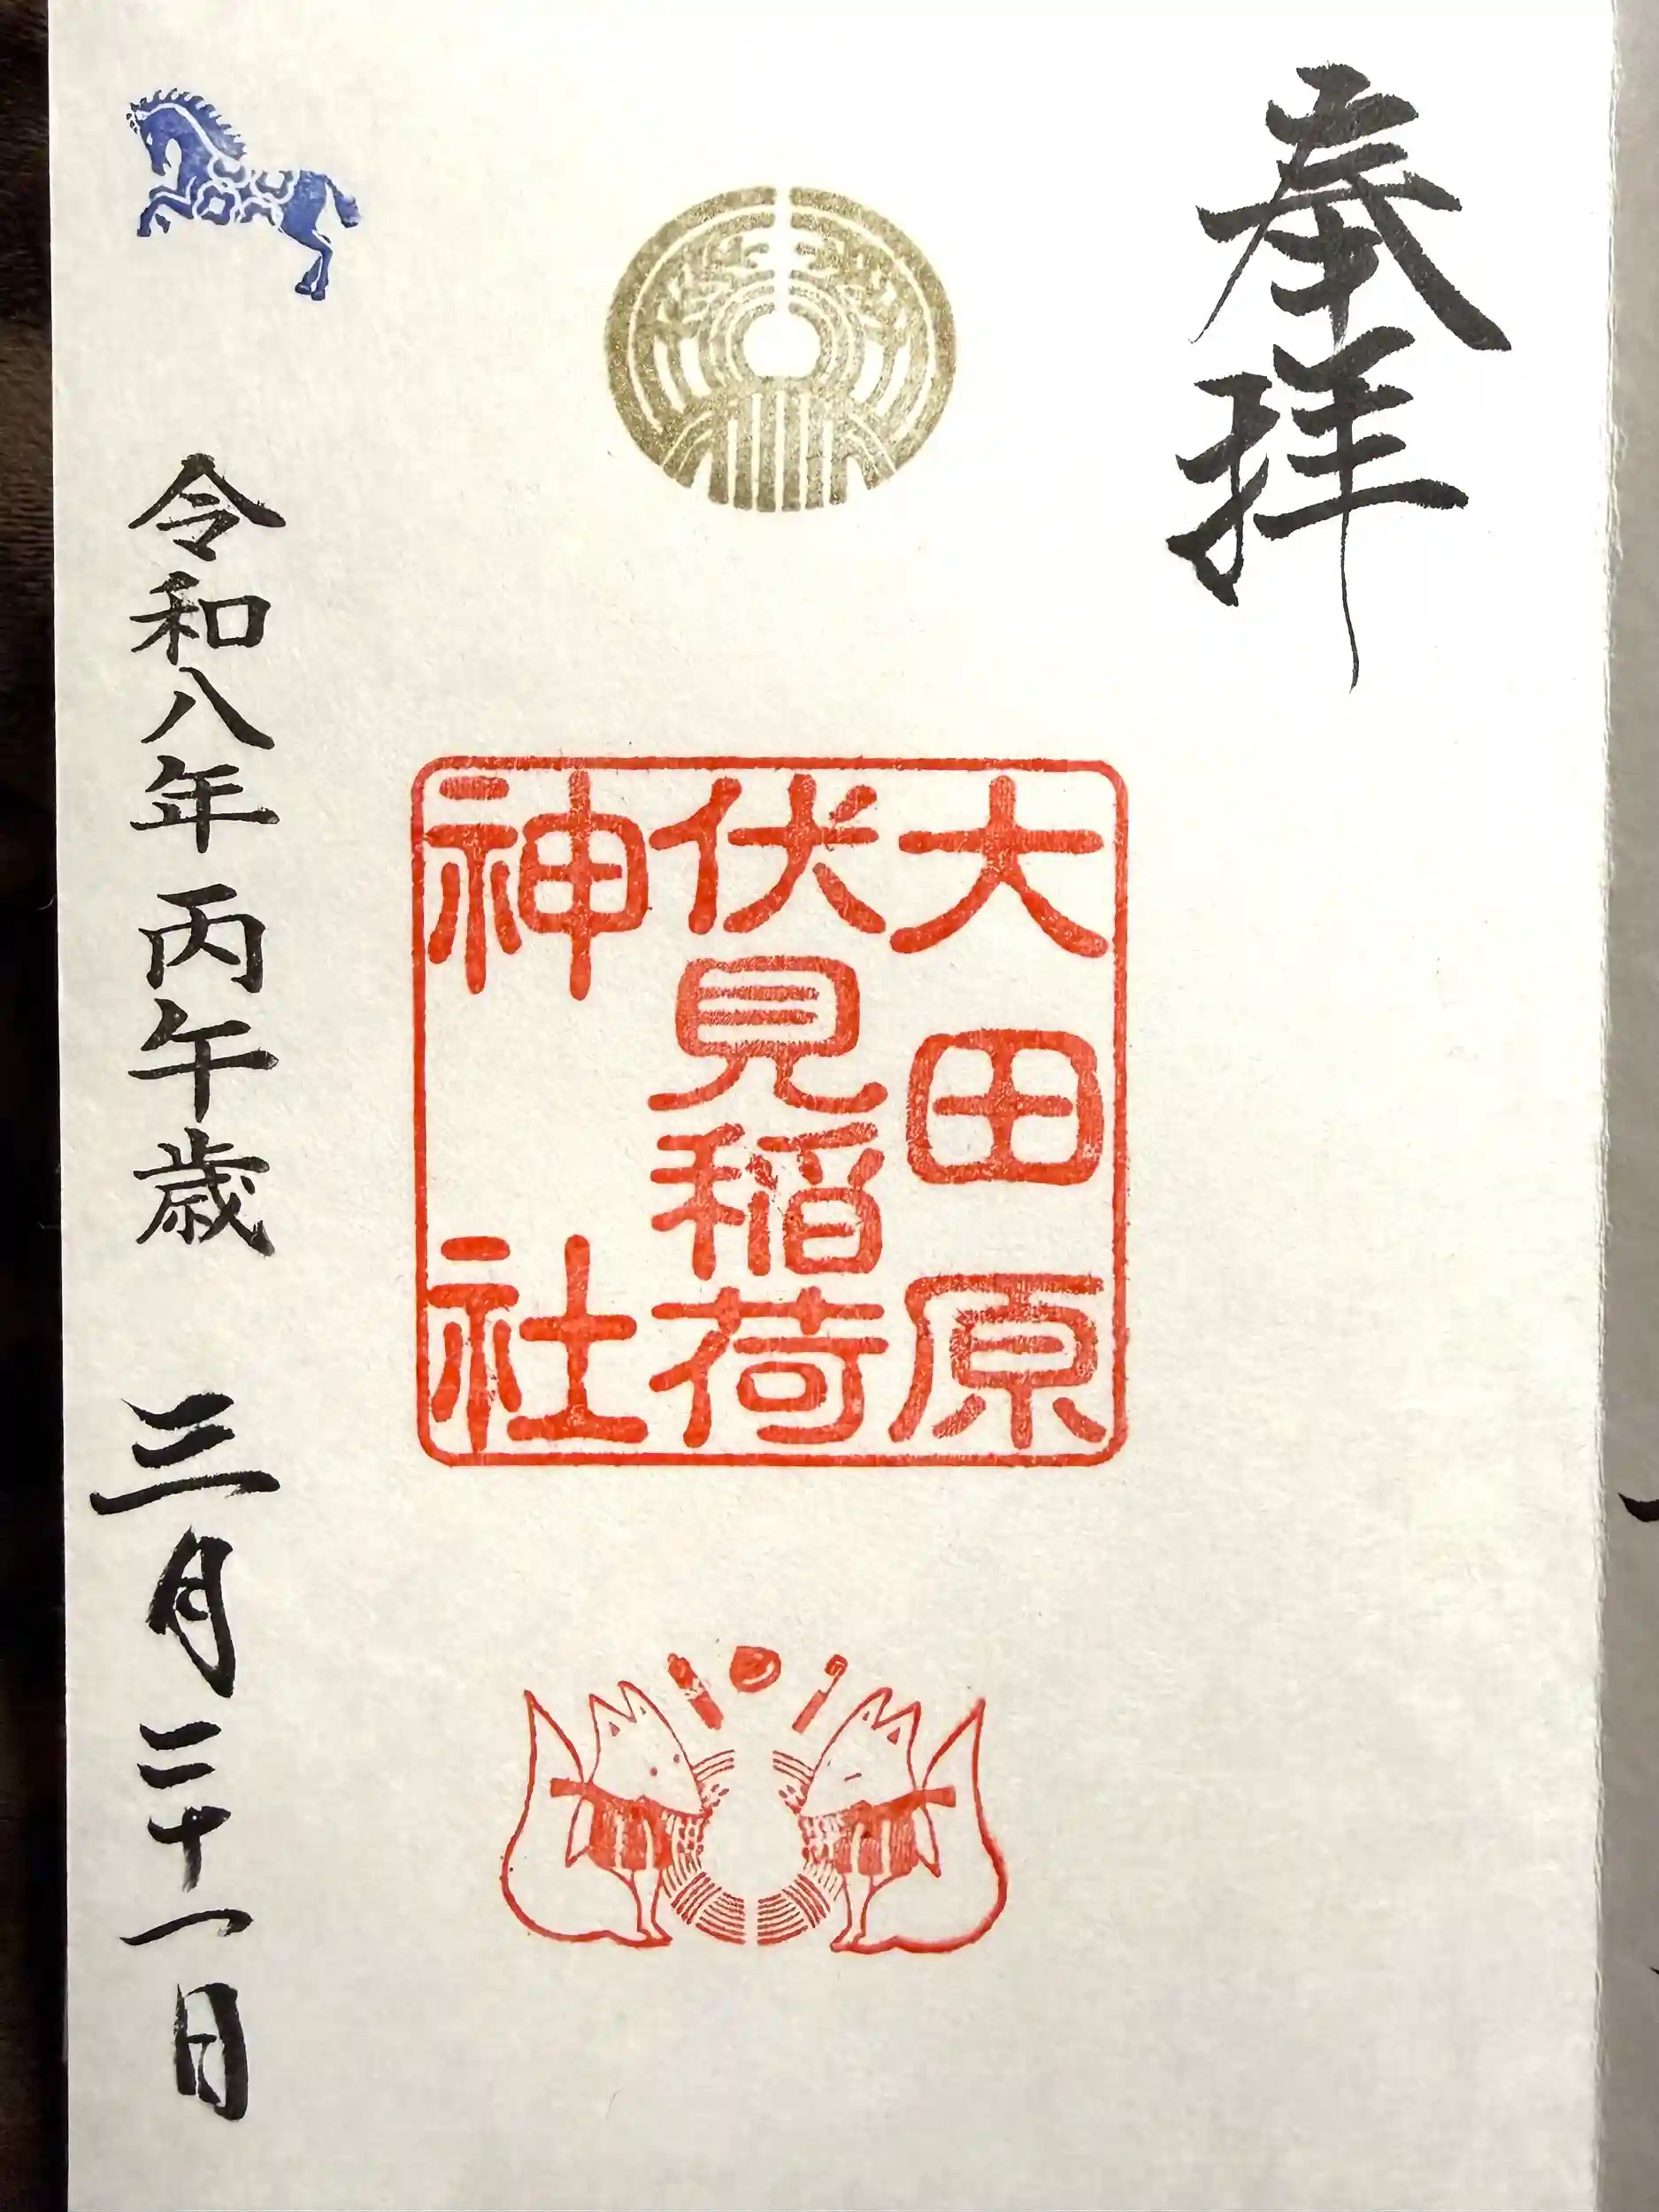 奉拝
大田原
伏見稲荷
神社
令和八年 丙午歳 三月二十一日